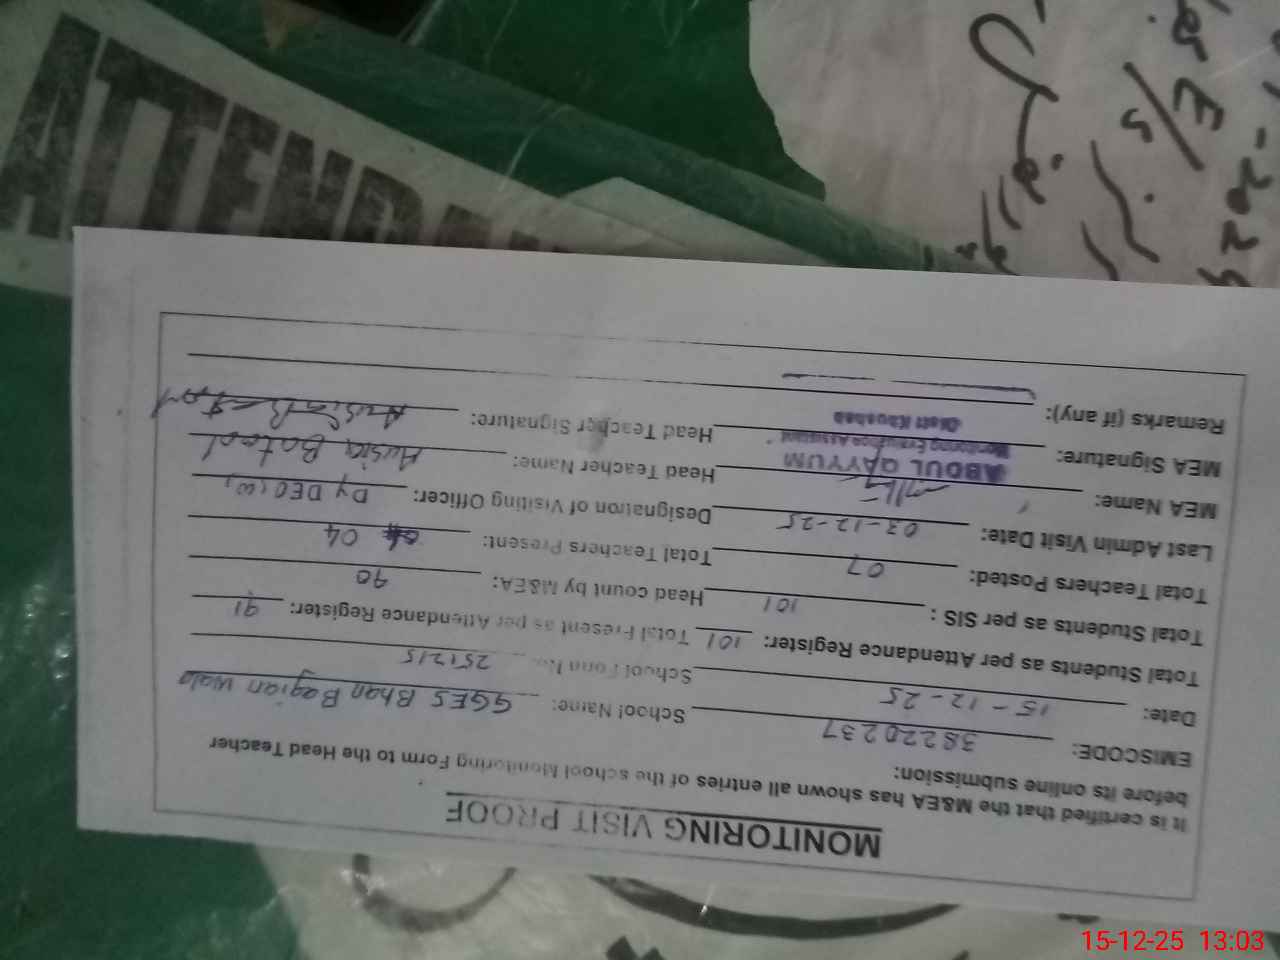 MONITORING VISIT PROOF
It is certified that the M&EA has shown all entries of the school Monitoring Form to the Head Teacher
before its online submission:
EMISCODE: 38220237 School Name: GGES Bhan Bagian wala
Date: 15-12-25 School Form No. 251215
Total Students as per Attendance Register: 101 Total Present as per Attendance Register: 91
Total Students as per SIS : 101 Head count by M&EA: 90
Total Teachers Posted: 07 Total Teachers Present: 04
Last Admin Visit Date: 03-12-25 Designation of Visiting Officer: Dy DEO (w)
MEA Name: Head Teacher Name: Batool
MEA Signature: Head Teacher Signature:
ABDUL QAYYUM
Monitoring Evaluation Assistant
Distt Khushab
Remarks (if any):
ATTENDAN
E/S
15-12-25 13:03